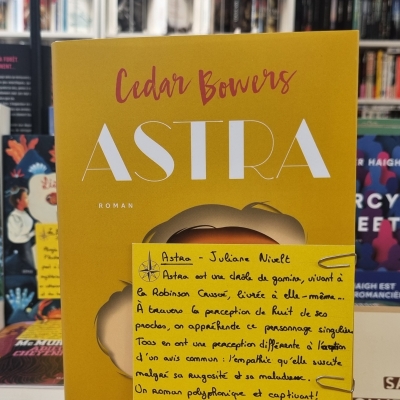 Cedar Bowers
ASTRA
ROMAN
Astra - Juliane Nivelt
Astra est une drôle de gamine, vivant à
la Robinson Crusoé, livrée à elle-même...
À travers la perception de huit de ses
proches, on appréhende ce personnage singulier.
Tous en ont une perception différente à l'exception
d'un avis commun : l'empathie qu'elle suscite
malgré sa rugosité et sa maladresse.
Un roman polyphonique et captivant!
ER HAIGH
RCY
EET
HAIGH EST
ROMANCIÈR
SA